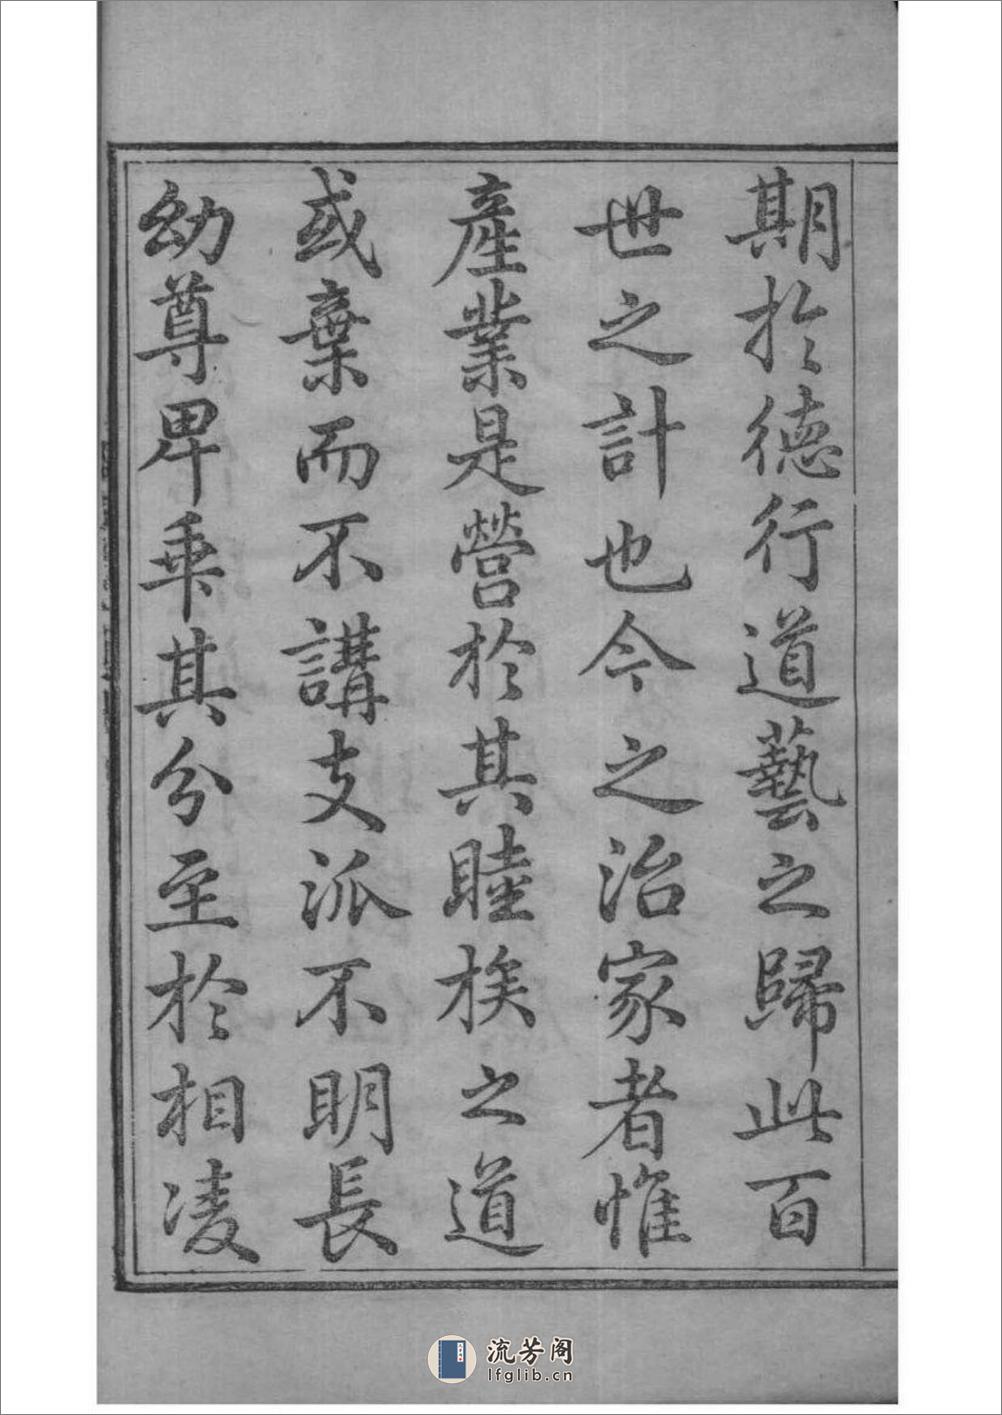 期於德行道藝之歸此百
世之計也今之治家者惟
產業是營於其睦族之道
或棄而不講支派不明長
幼尊卑乘其分至於相凌
流芳阁
lfglib.cn